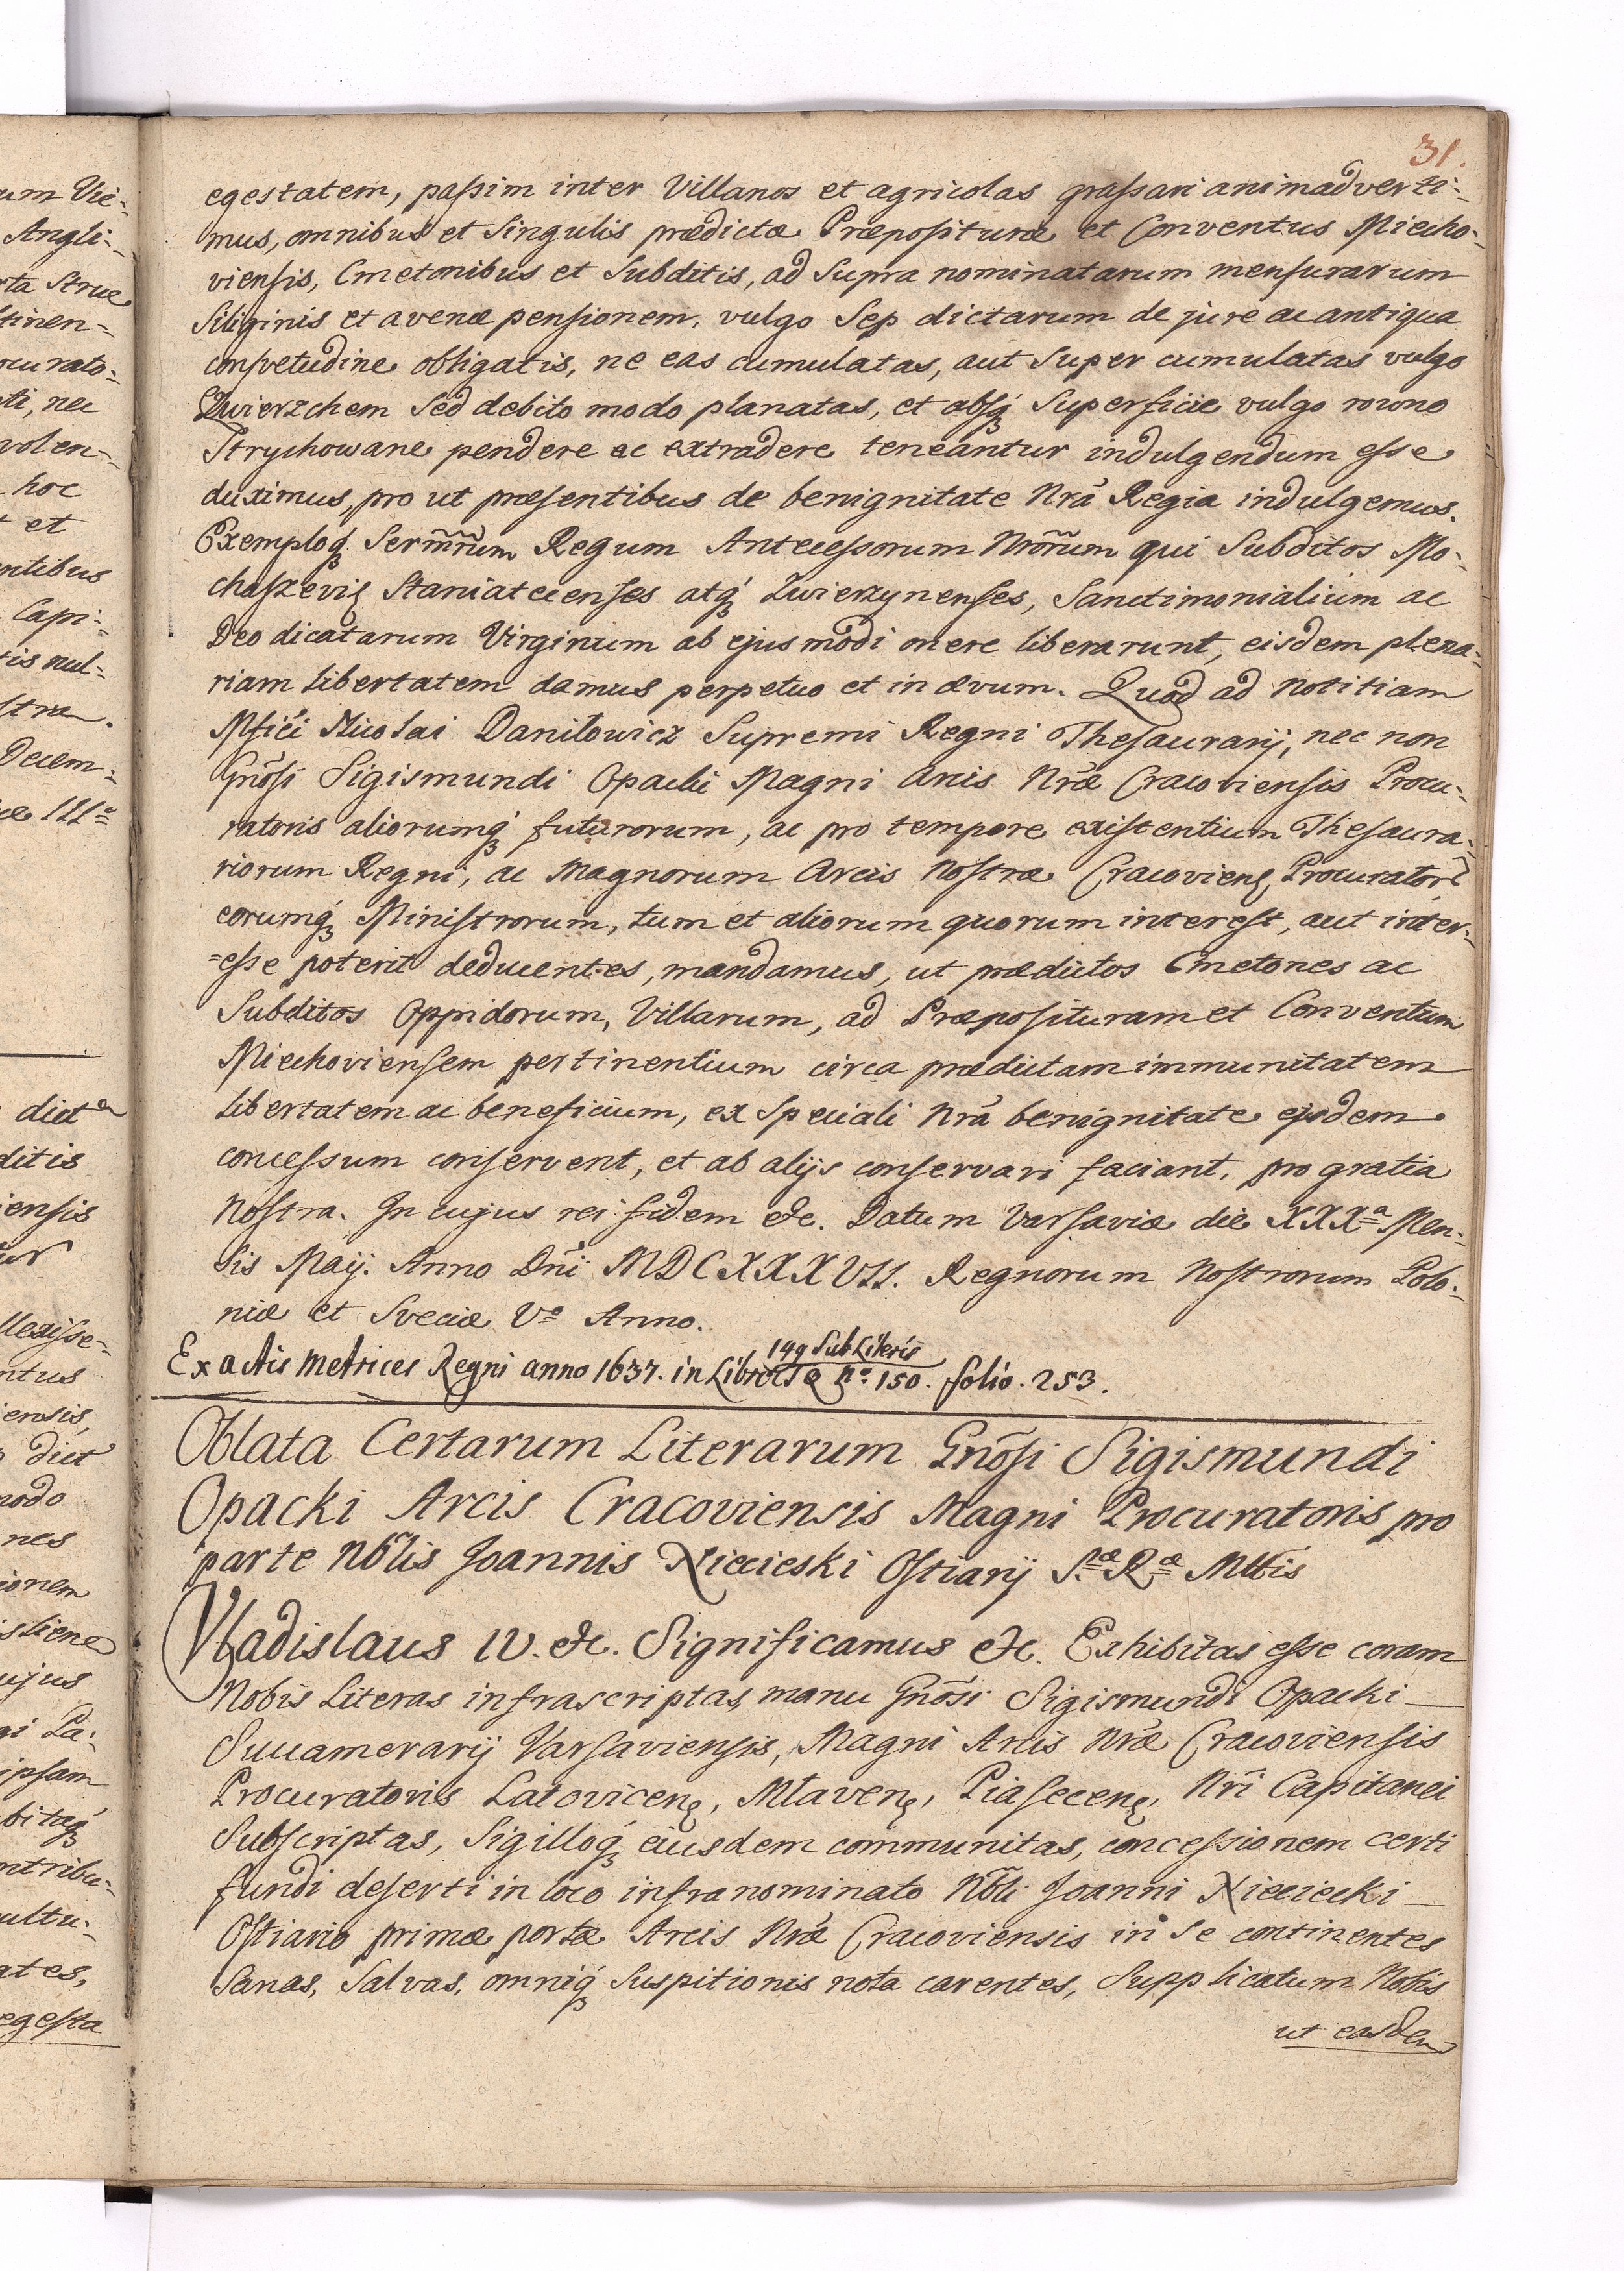 31.
egestatem, passim inter Villanos et agricolas grassari animadverti-
mus, omnibus et Singulis prædictæ Præposituræ et Conventus Miecho-
viensis, Cmetonibus et Subditis, ad Supra nominatarum mensurarum
Siliginis et avenæ pensionem, vulgo Sep dictarum de jure ac antiqua
consvetudine obligatis, ne eas cumulatas, aut Super cumulatas vulgo
Zwierzchem Sed debito modo planatas, et absq́ Superficie vulgo rowno
Strychowane pendere ac extradere teneantur indulgendum esse
duximus, pro ut præsentibus de benignitate Nrā Regia indulgemus.
Exemploq́ Serm̄rūm Regum Antecessorum Nrōrūm qui Subditos Mo-
chaszevię Staniatecienses atq́ Zwierzynenses, Sanctimonialium ac
Deo dicatarum Virginum ab ejusmodi onere liberarunt, eisdem plena-
riam libertatem damus perpetuo et in ævum. Quod ad notitiam
Mfići Nicolai Daniłowicz Supremi Regni Thesaurarij, nec non
Gnōsi Sigismundi Opacki Magni Arcis Nræ Cracoviensis Procu-
ratoris aliorumq́ futurorum, ac pro tempore existentium Thesaura-
riorum Regni, ac Magnorum Arcis Nostræ Cracovienę Procurator
eorumq́ Ministrorum, tum et aliorum quorum interest, aut inter-
=esse poterit deducentes, mandamus, ut prædictos Cmetones ac
Subditos Oppidorum, Villarum, ad Præposituram et Conventum
Miechoviensem pertinentium circa prædictam immunitatem
libertatem ac beneficium, ex Speciali Nrā benignitate ejsdem
concessum conservent, et ab alijs conservari faciant, pro gratia
Nostra. In cujus rei fidem &c. Datum Varsaviæ die XXXa Men-
sis Maij. Anno Dn̄i MDCXXXVII. Regnorum Nostrorum Polo-
niæ et Sveciæ Vo Anno.
149 Sub Literis
Ex actis Metrices Regni anno 1637. in Libro No. 150. folio. 253.
Oblata Certarum Literarum Gnōsi Sigismundi
Opacki Arcis Cracoviensis Magni Procuratoris pro
parte Nōblis Joannis Niecieski Ostiarij Sæ Ræ Mttis
Vladislaus IV. &c. Significamus &c. Exhibitas esse coram
Nobis Literas infrascriptas, manu Gnōsi Sigismundi Opacki
Succamerarij Varsaviensis, Magni Arcis Nræ Cracoviensis
Procuratoris Latovicenę, Mlavenę, Piasecenę, Nr̄i Capitanei
Subscriptas, Sigilloq́ eiusdem communitas, concessionem certi
fundi deserti in loco infranominato Nōbli Joanni Nieciecki
Ostiario primæ portæ Arcis Nræ Cracoviensis in Se continentes
Sanas, Salvas, omniq́ Suspitionis nota carentes, Supplicatum Nobis
ut easdem